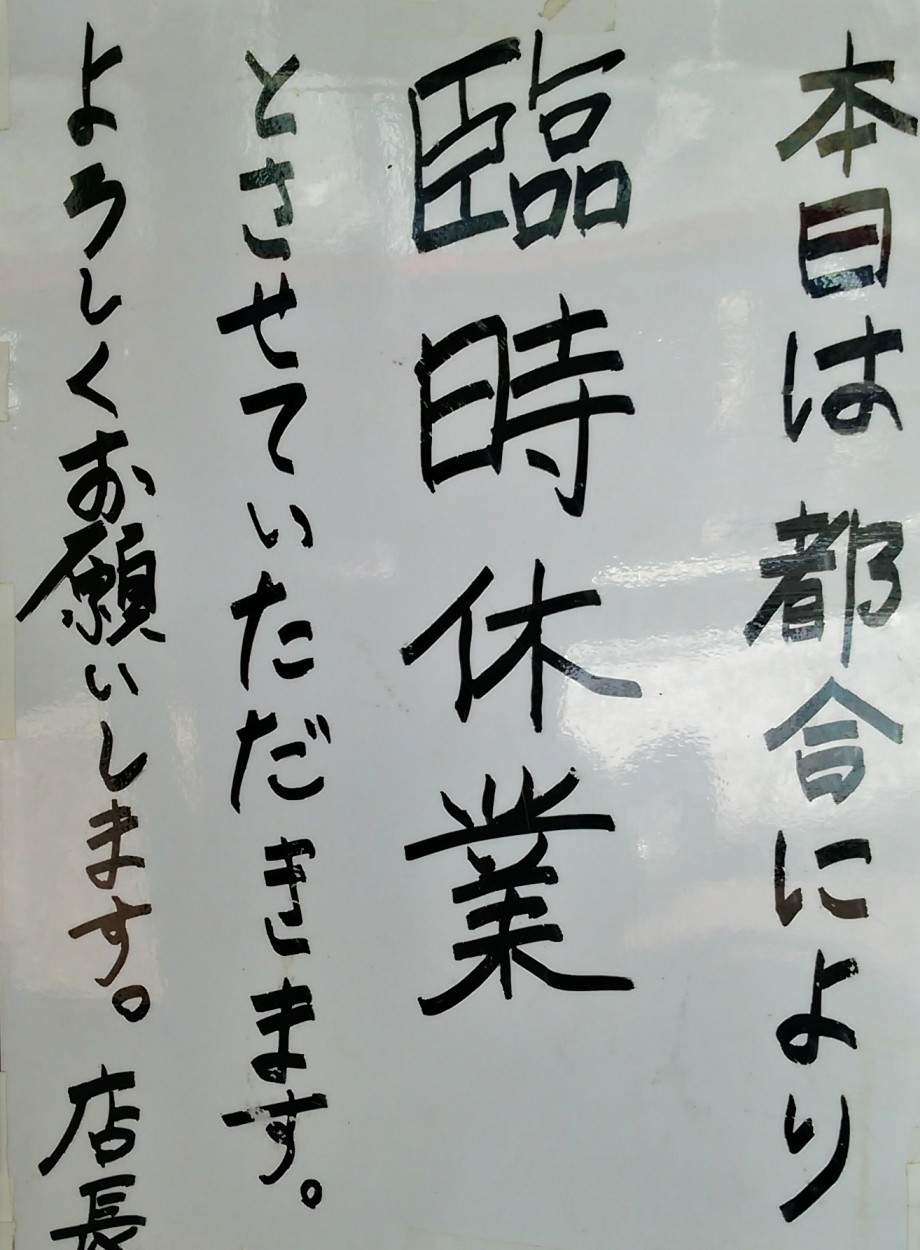 本日は都合により
臨時休業
とさせていただきます。
よろしくお願いします。店長